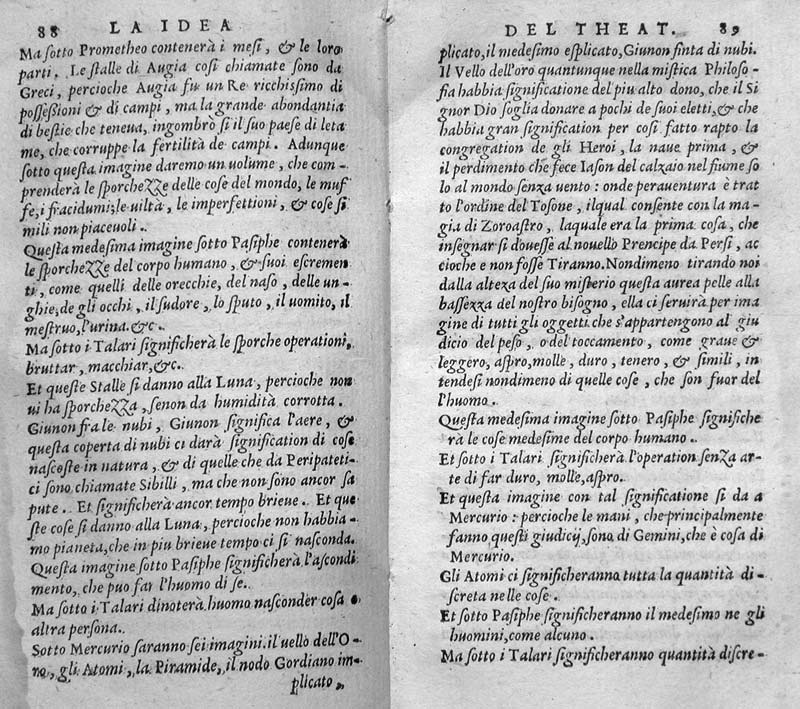 88 LA IDEA
Ma sotto Prometheo contenerà i mesi, & le loro
parti. Le stalle di Augia cosi chiamate sono da
Greci, percioche Augia fu un Re ricchissimo di
possessioni & di campi, ma la grande abondantia
di bestie che teneua, ingombrò si il suo paese di leta
me, che corruppe la fertilità de campi. Adunque
sotto questa imagine daremo un uolume, che com-
prenderà le sporchezze delle cose del mondo, le muf
fe, i fracidumi, le uiltà, le imperfettioni, & cose si
mili non piaceuoli.
Questa medesima imagine sotto Pasiphe contenerà
le sporchezze del corpo humano, & suoi escremen
ti, come quelli delle orecchie, del naso, delle un-
ghie, de gli occhi, il sudore, lo sputo, il uomito, il
mestruo, l'urina. &c.
Ma sotto i Talari significherà le sporche operationi,
bruttar, macchiar, &c.
Et queste Stalle si danno alla Luna, percioche non
ui ha sporchezza, senon da humidità corrotta.
Giunon fra le nubi, Giunon significa l'aere, &
questa coperta di nubi ci darà signification di cose
nascoste in natura, & di quelle che da Peripateti-
ci sono chiamate Sibilli, ma che non sono ancor sa
pute. Et significherà ancor tempo brieue. Et que
ste cose si danno alla Luna, percioche non habbia-
mo pianeta, che in piu brieue tempo ci si nasconda.
Questa imagine sotto Pasiphe significherà l'ascondi
mento, che puo far l'huomo di se.
Ma sotto i Talari dinoterà huomo nasconder cosa o
altra persona.
Sotto Mercurio saranno sei imagini. il uello dell'O-
ro, gli Atomi, la Piramide, il nodo Gordiano im-
plicato,
DEL THEAT. 89
plicato, il medesimo esplicato, Giunon finta di nubi.
Il Vello dell'oro quantunque nella mistica Philoso-
fia habbia significatione del piu alto dono, che il Si
gnor Dio soglia donare a pochi de suoi eletti, & che
habbia gran signification per cosi fatto rapto la
congregation de gli Heroi, la naue prima, &
il perdimento che fece Iason del calzaio nel fiume so
lo al mondo senza uento: onde perauentura è trat
to l'ordine del Tosone, ilqual consente con la ma-
gia di Zoroastro, laquale era la prima cosa, che
insegnar si douesse al nouello Prencipe da Persi, ac
cioche e non fosse Tiranno. Nondimeno tirando noi
dalla alteza del suo misterio questa aurea pelle alla
bassezza del nostro bisogno, ella ci seruirà per ima
gine di tutti gli oggetti che s'appartengono al giu
dicio del peso, o del toccamento, come graue &
leggero, aspro, molle, duro, tenero, & simili, in
tendesi nondimeno di quelle cose, che son fuor del
l'huomo.
Questa medesima imagine sotto Pasiphe significhe
rà le cose medesime del corpo humano.
Et sotto i Talari significherà l'operation senza ar-
te di far duro, molle, aspro.
Et questa imagine con tal significatione si da a
Mercurio: percioche le mani, che principalmente
fanno questi giudicij, sono di Gemini, che è cosa di
Mercurio.
Gli Atomi ci significheranno tutta la quantità di-
screta nelle cose.
Et sotto Pasiphe significheranno il medesimo ne gli
huomini, come alcuno.
Ma sotto i Talari significheranno quantità discre-